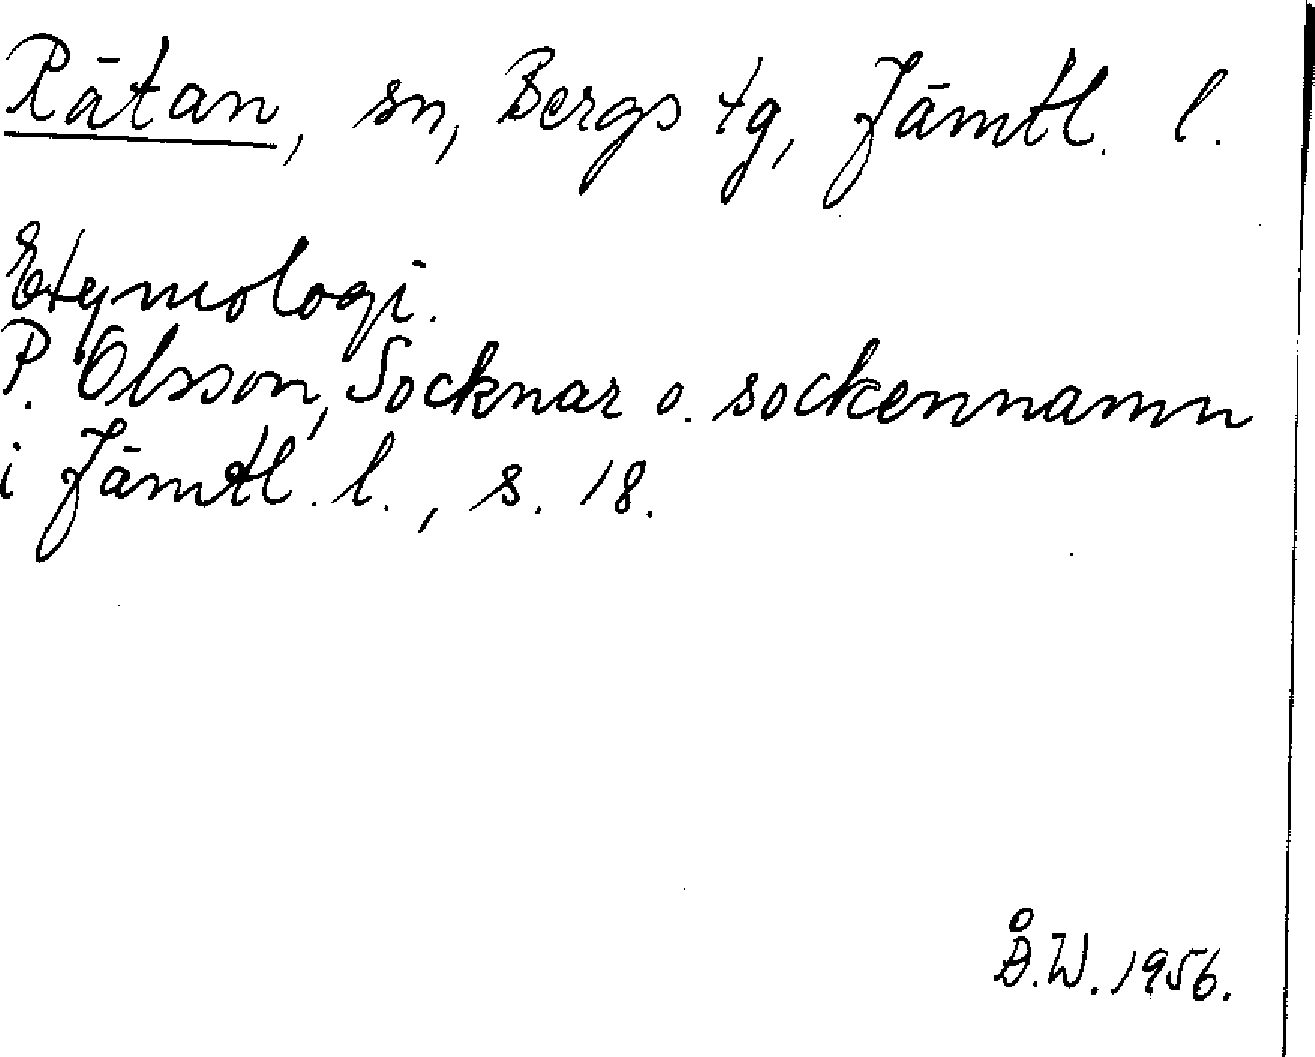 Rätan, sn, Bergs tg, Jämtl. l.
Etymologi.
P. Olsson, Socknar o. sockennamn
i Jämtl. l., s. 18.
Å.W. 1956.